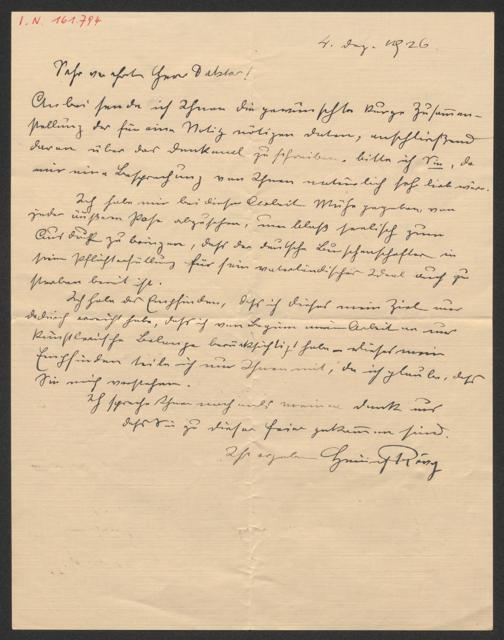 I. N. 161.794
4. Dez. 1926
Sehr verehrter Herr Doktor!
Anbei sende ich Ihnen die gewünschte kurze Zusammen-
stellung der für eine Notiz nötigen Daten, anschließend
daran über das Denkmal zu schreiben, bitte ich Sie, da
mir eine Besprechung von Ihnen natürlich sehr lieb wäre.
Ich habe mir bei dieser Arbeit Mühe gegeben von
jeder äußeren Pose abzusehen, um bloß seelisch zum
Ausdruck zu bringen, daß der deutsche Burschenschafter in
seiner Pflichterfüllung für sein vaterländisches Ideal auch zu
sterben bereit ist.
Ich habe das Empfinden, daß ich dieses mein Ziel nur
dadurch erreicht habe, daß ich von Beginn meiner Arbeit an nur
künstlerische Belange berücksichtigt habe – dieses mein
Empfinden teile ich nur Ihnen mit, da ich glaube, daß
Sie mich verstehen.
Ich spreche Ihnen nochmals meinen Dank aus
daß Sie zu dieser Feier gekommen sind.
Ihr ergebener